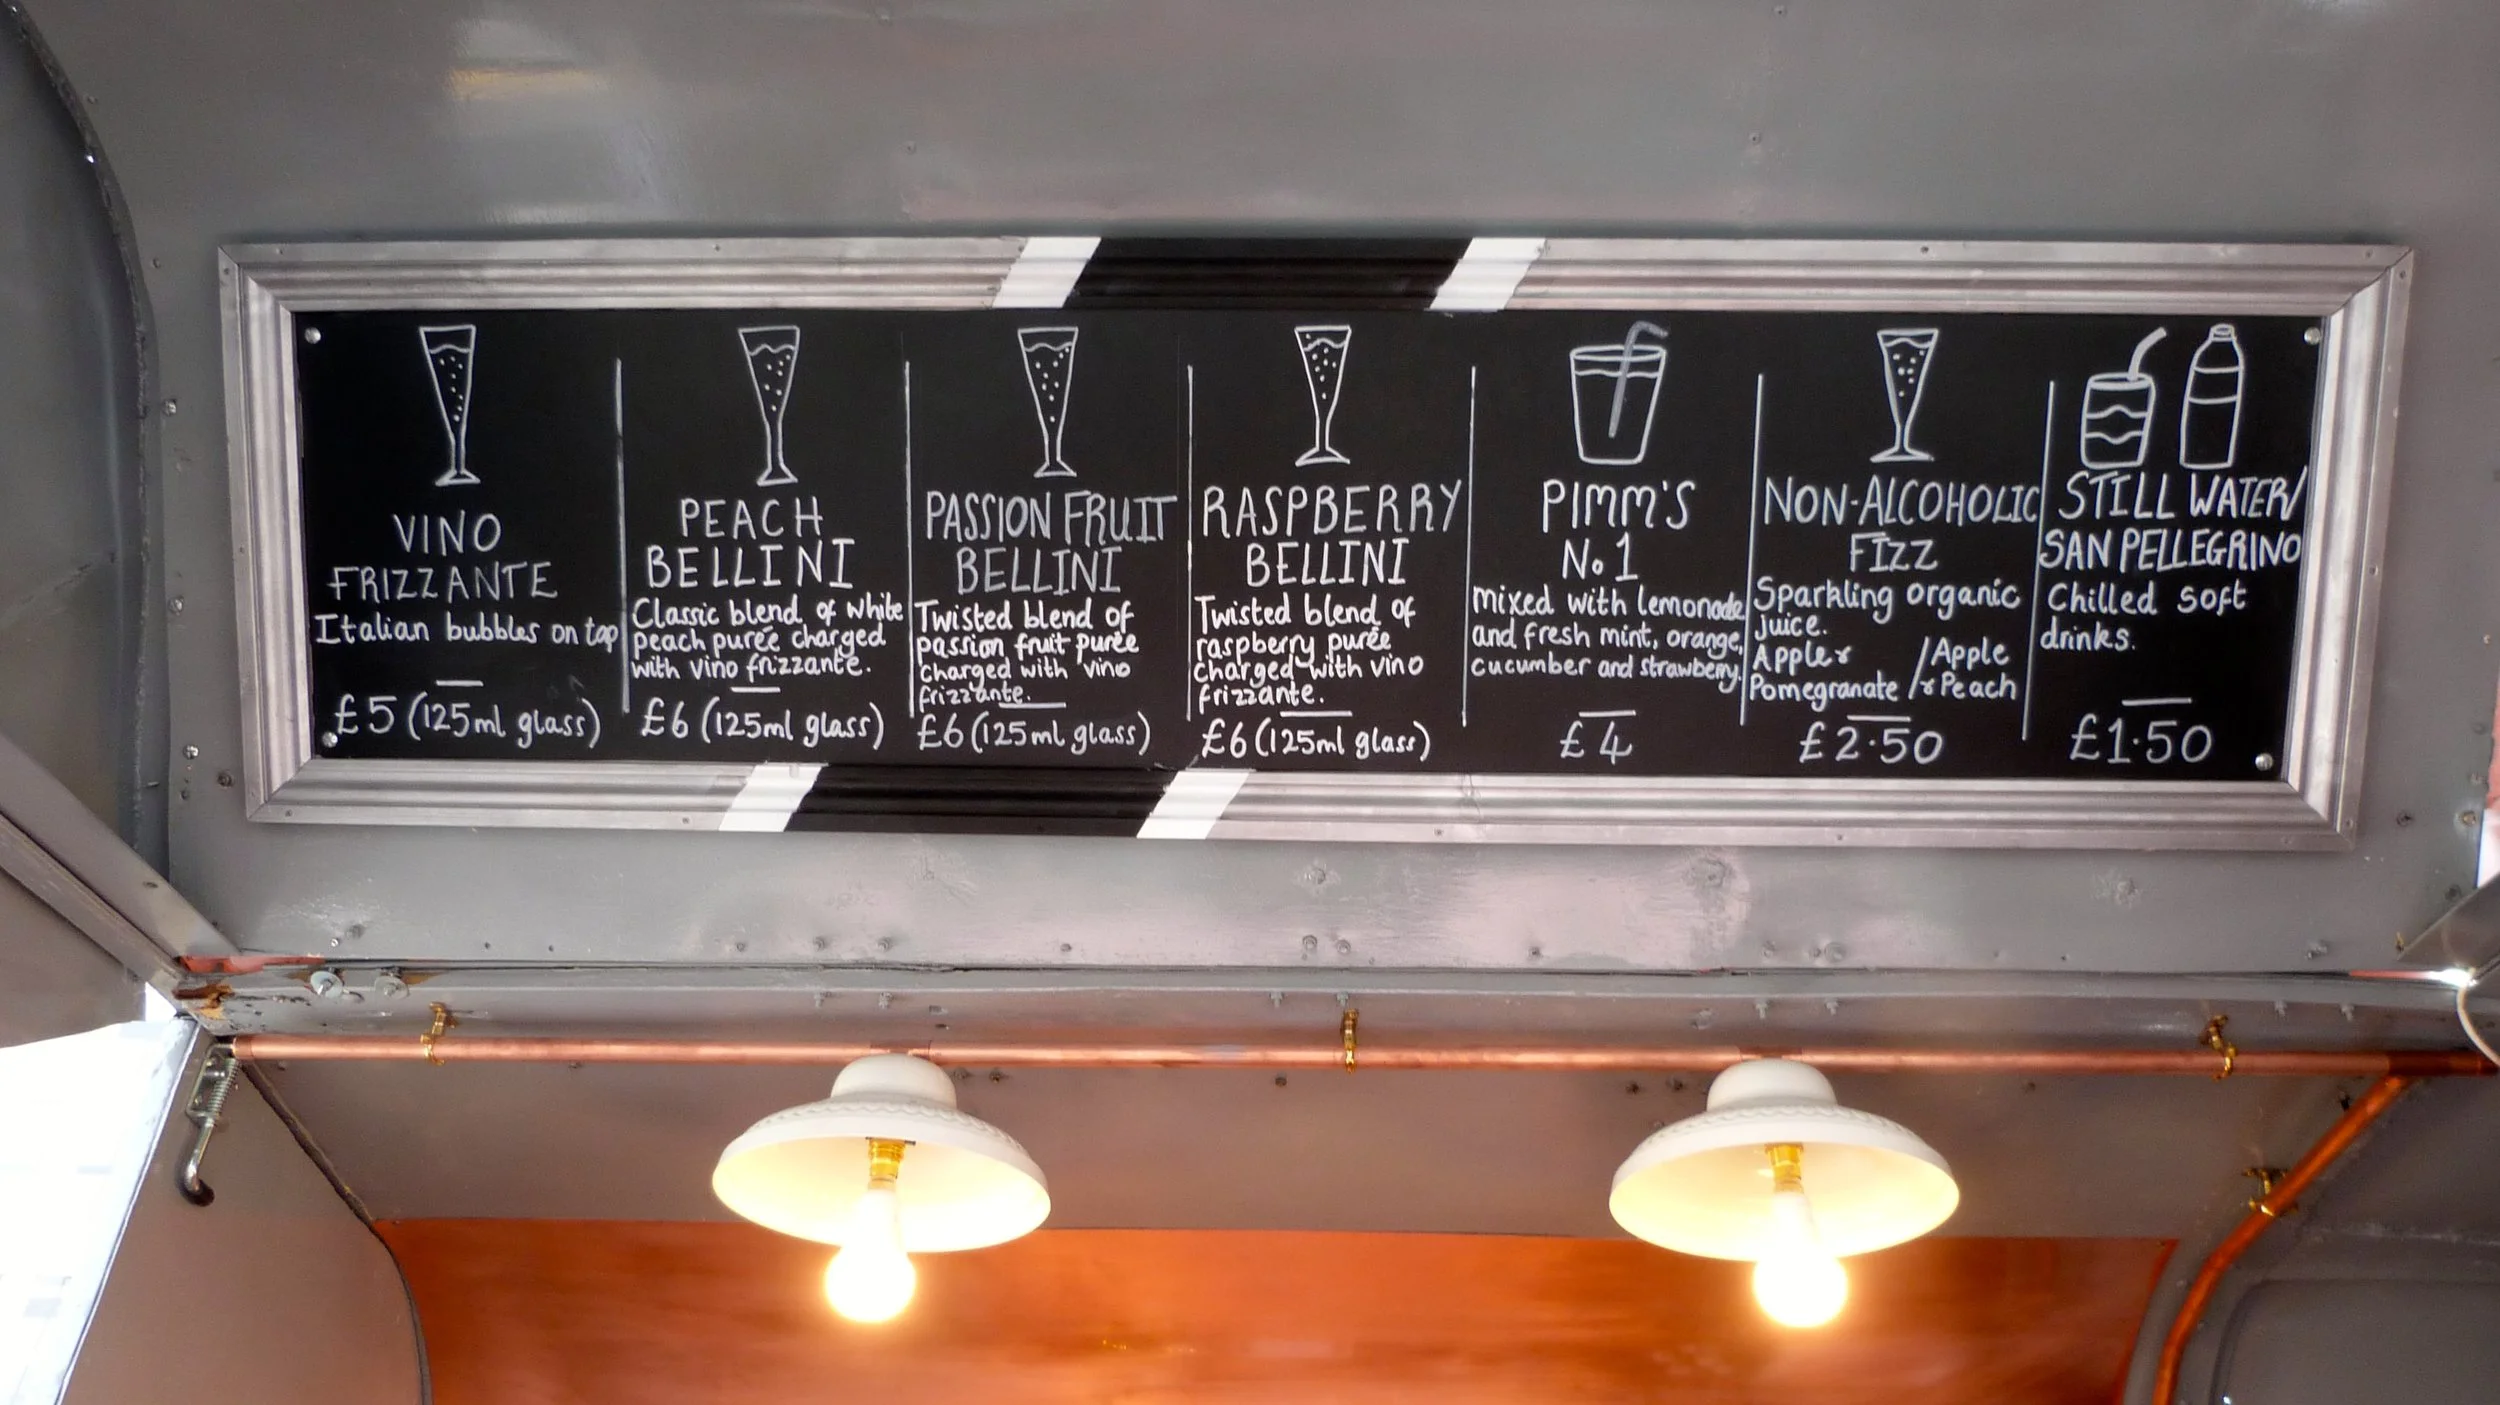 VINO
FRIZZANTE
Italian bubbles on tap
£5 (125ml glass)
PEACH
BELLINI
Classic blend of white
peach purée charged
with vino frizzante.
£6 (125ml glass)
PASSION FRUIT
BELLINI
Twisted blend of
passion fruit purée
charged with vino
frizzante.
£6 (125ml glass)
RASPBERRY
BELLINI
Twisted blend of
raspberry purée
charged with vino
frizzante.
£6 (125ml glass)
PIMM'S
No.1
mixed with lemonade
and fresh mint, orange,
cucumber and strawberry.
£4
NON-ALCOHOLIC
FIZZ
Sparkling organic
juice.
Apple &
Pomegranate
/Apple
/& Peach
£2.50
STILL WATER/
SAN PELLEGRINO
Chilled soft
drinks.
£1.50